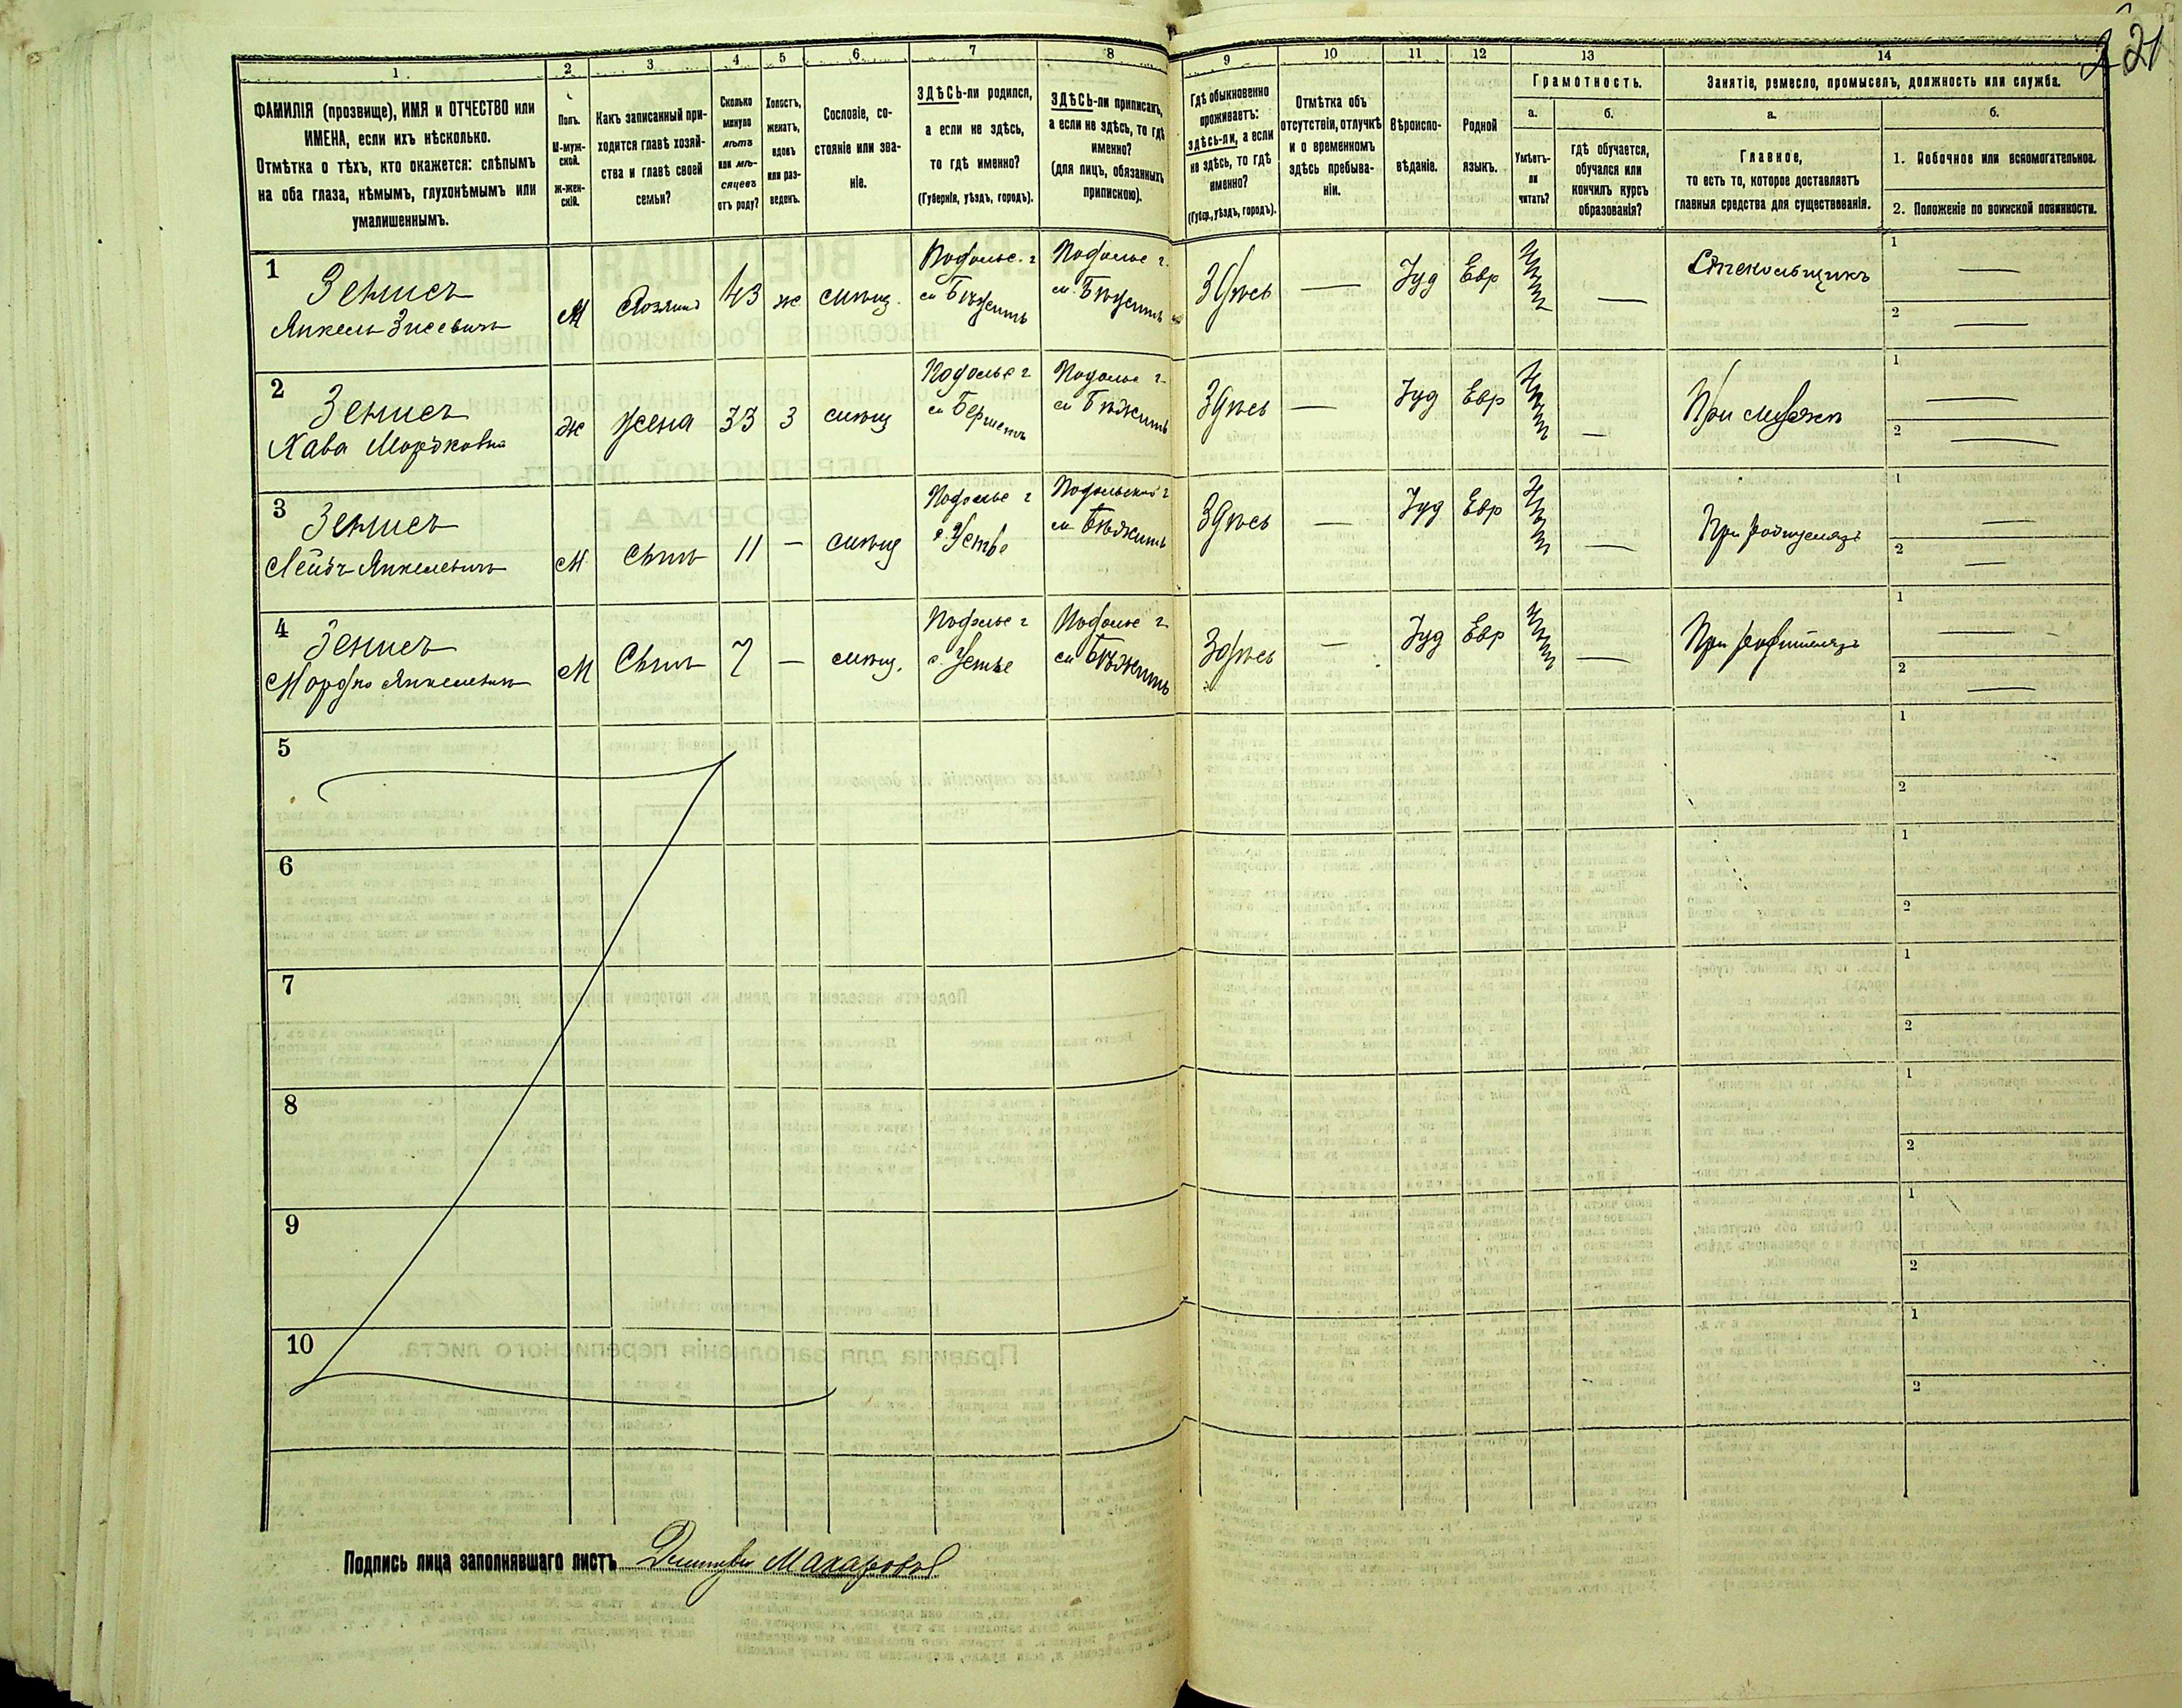 221
1 2 3 4 5 6 7 8 9 10 11 12 13 14
ФАМИЛІЯ (прозвище), ИМЯ и ОТЧЕСТВО или
ИМЕНА, если ихъ нѣсколько.
Отмѣтка о тѣхъ, кто окажется: слѣпымъ
на оба глаза, нѣмымъ, глухонѣмымъ или
умалишеннымъ.
Полъ.
М-муж-
ской.
Ж-жен-
скій.
Какъ записанный при-
ходится главѣ хозяй-
ства и главѣ своей
семьи?
Сколько
минуло
лѣтъ
или мѣ-
сяцевъ
отъ роду?
Холостъ,
женатъ,
вдовъ
или раз-
веденъ.
Сословіе, со-
стояніе или зва-
ніе.
ЗДѢСЬ-ли родился,
а если не здѣсь,
то гдѣ именно?
(Губернія, уѣздъ, городъ).
ЗДѢСЬ-ли приписанъ,
а если не здѣсь, то гдѣ
именно?
(для лицъ, обязанныхъ
припискою).
Гдѣ обыкновенно
проживаетъ:
здѣсь-ли, а если
не здѣсь, то гдѣ
именно?
(Губер., уѣздъ, городъ).
Отмѣтка объ
отсутствіи, отлучкѣ
и о временномъ
здѣсь пребыва-
ніи.
Вѣроиспо-
вѣданіе.
Родной
языкъ.
Грамотность.
а.
Умѣетъ-
ли
читать?
б.
гдѣ обучается,
обучался или
кончилъ курсъ
образованія?
Занятіе, ремесло, промыселъ, должность или служба.
а.
Главное,
то есть то, которое доставляетъ
главныя средства для существованія.
б.
1. Побочное или вспомогательное.
2. Положеніе по воинской повинности.
1 Зенисъ
Янкель Зисевичъ
М
Хозяинъ
43
ж
мѣщ.
Подольс. г
м Бѣжеить
Подольс г.
м. Бѣжеить
Здѣсь
—
Іуд
Евр
Нѣтъ
—
Стекольщикъ
1 —
2 —
2 Зенисъ
Хава Мордковна
ж
жена
33
З
мѣщ
Подольс г
Подольс г
Здѣсь
—
Іуд
Евр
Нѣтъ
—
При мужѣ
1 —
2 —
3 Зенисъ
Лейбъ Янкелевичъ
М
Сынъ
11
—
мѣщ
Подольс г
с. Устье
Подольской г
Здѣсь
—
Іуд
Евр
Нѣтъ
—
При родителяхъ
1 —
2 —
4 Зенисъ
Мордко Янкелевичъ
М
Сынъ
7
—
мѣщ.
Подольс г
с. Устье
Подольс г
Здѣсь
—
Іуд
Евр
Нѣтъ
—
При родителяхъ
1 —
2 —
5
1
2
6
1
2
7
1
2
8
1
2
9
1
2
10
1
2
Подпись лица заполнявшаго листъ Макаровъ